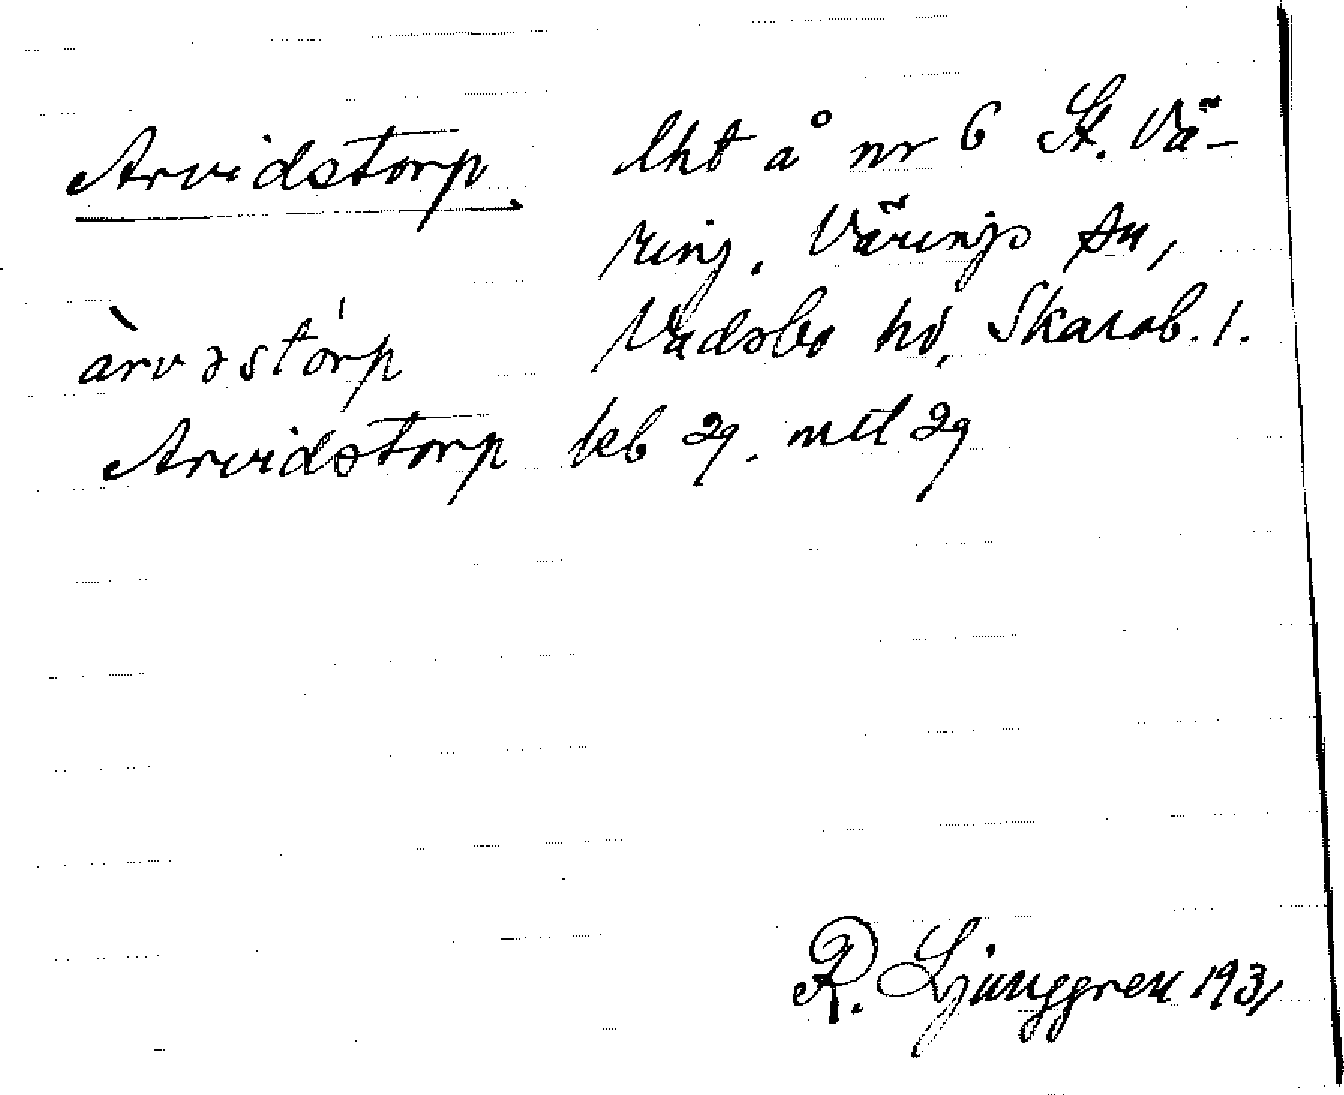 Arvidstorp. lht å nr 6 St. Vä-
ring, Värings sn,
àrvəstórp Vadsbo hd, Skarab. l.
Arvidstorp leb 29. mtl 29
R. Ljunggren 1931